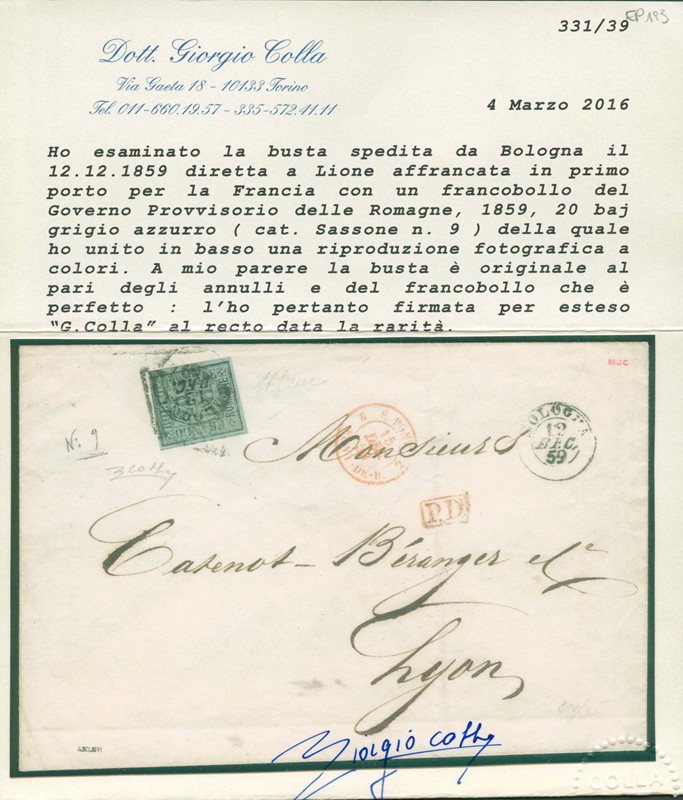 331/39
EP193
Dott. Giorgio Colla
Via Gaeta 18 - 10133 Torino
Tel. 011-660.19.57 - 335-572.41.11
4 Marzo 2016
Ho esaminato la busta spedita da Bologna il
12.12.1859 diretta a Lione affrancata in primo
porto per la Francia con un francobollo del
Governo Provvisorio delle Romagne, 1859, 20 baj
grigio azzurro ( cat. Sassone n. 9 ) della quale
ho unito in basso una riproduzione fotografica a
colori. A mio parere la busta è originale al
pari degli annulli e del francobollo che è
perfetto : l'ho pertanto firmata per esteso
"G.Colla" al recto data la rarità.
N: 9
BOLOGNA
12
DEC.
59
15
Monsieurs
P.D.
Béranger et Cie
Lyon
Giorgio Colla
COLLA